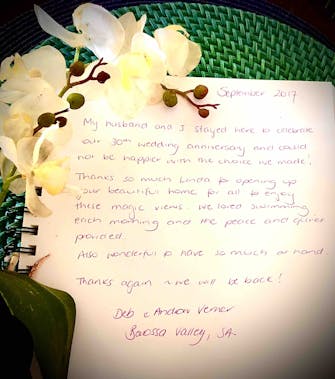 September 2017
My husband and I stayed here to celebrate
our 30th wedding anniversary and could
not be happier with the choice we made!
Thanks so much Linda for opening up
your beautiful home for all to enjoy
these magic views. We loved swimming
each morning and the peace and quiet
provided.
Also wonderful to have so much on hand.
Thanks again ~ we will be back!
Deb & Andon Verner
Barossa Valley, SA.